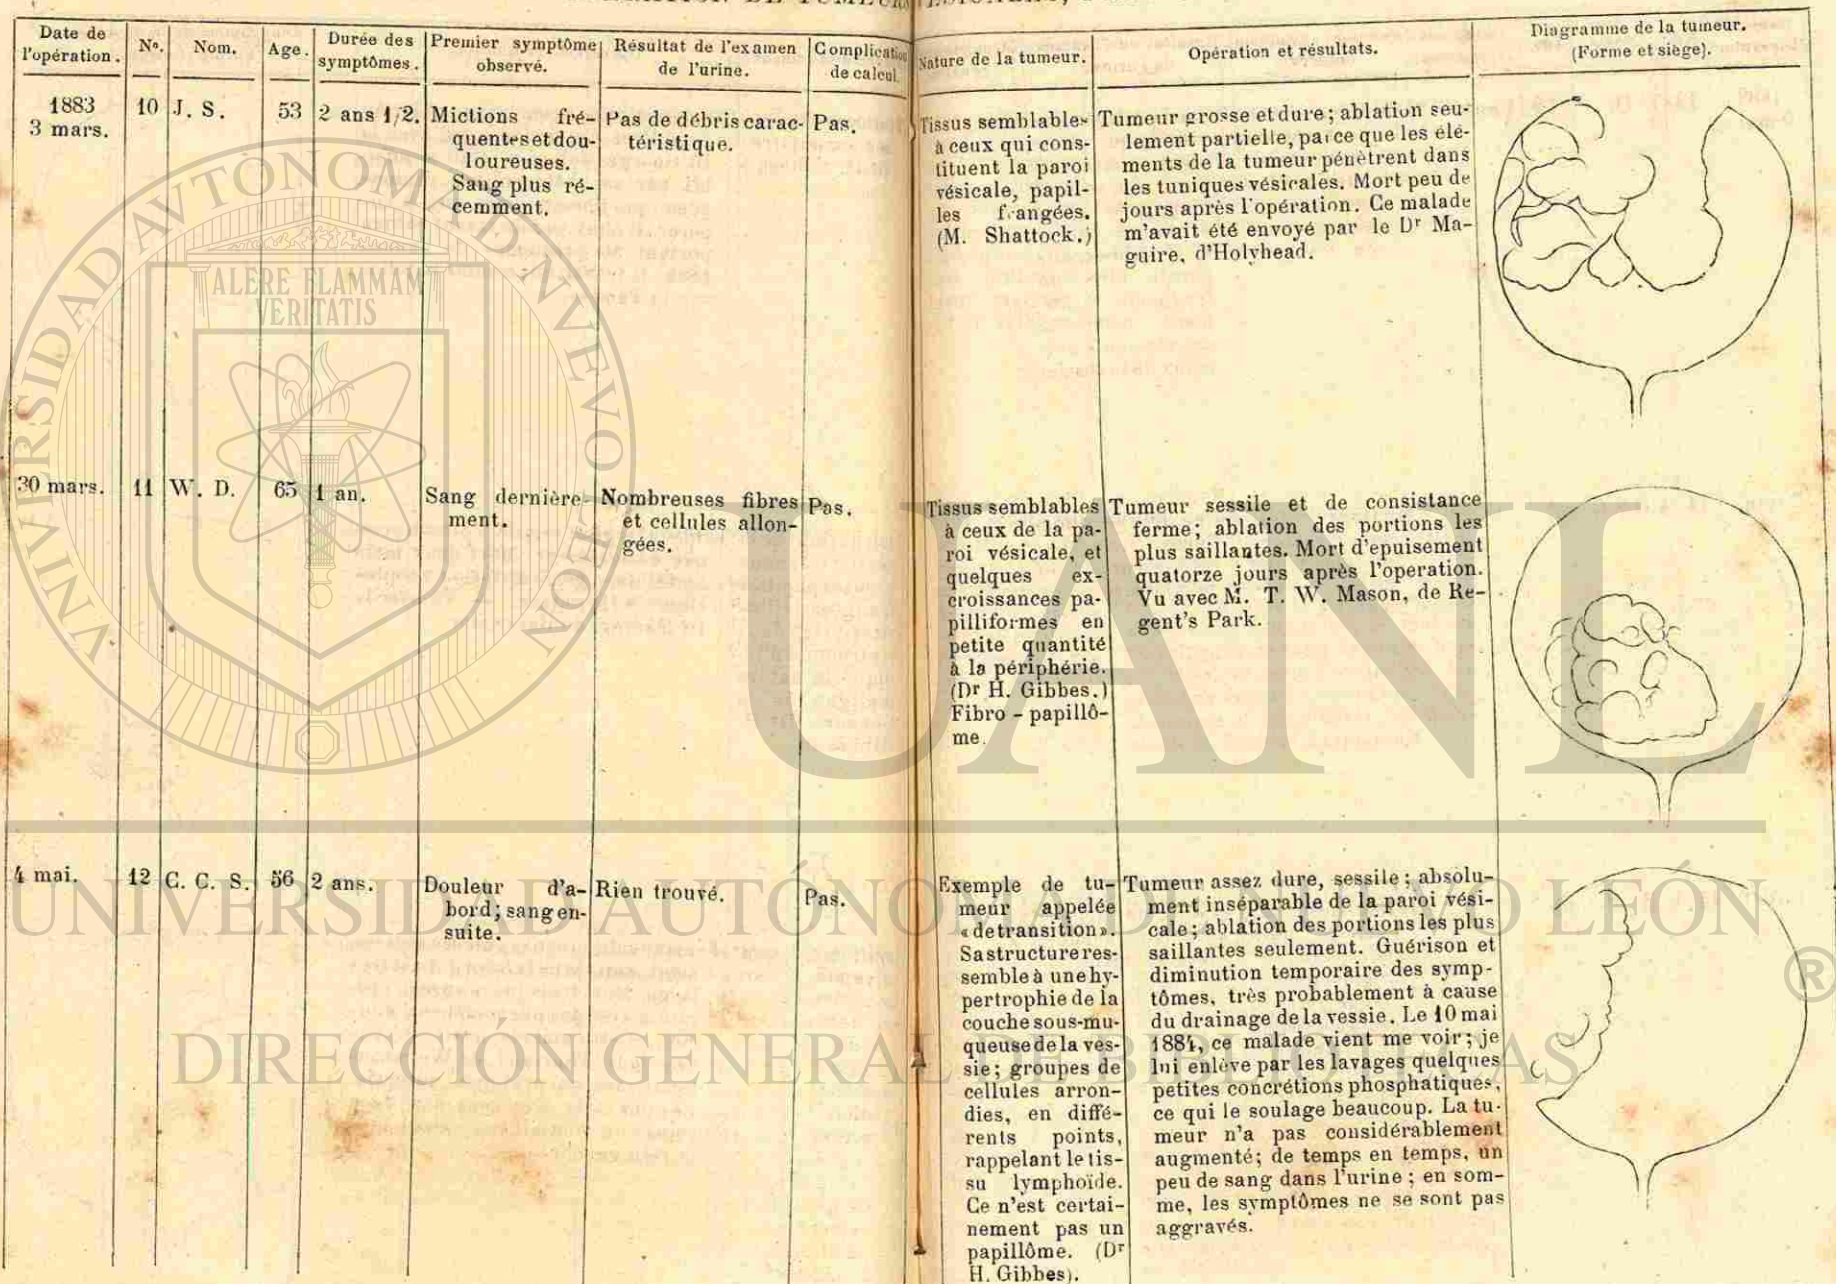 DE TUMEURS
Date de
l'opération.
Nº.
Nom.
Age.
Durée des
symptômes.
Premier symptôme
observé.
Résultat de l'examen
de l'urine.
Complication
de calcul.
Nature de la tumeur.
Opération et résultats.
Diagramme de la tumeur.
(Forme et siège).
1883
3 mars.
10
J. S.
53
2 ans 1/2.
Mictions fré-
quentes et dou-
loureuses.
Sang plus ré-
cemment.
Pas de débris carac-
téristique.
Pas.
Tissus semblables
à ceux qui cons-
tituent la paroi
vésicale, papil-
les frangées.
(M. Shattock.)
Tumeur grosse et dure; ablation seu-
lement partielle, parce que les élé-
ments de la tumeur pénètrent dans
les tuniques vésicales. Mort peu de
jours après l'opération. Ce malade
m'avait été envoyé par le Dr Ma-
guire, d'Holyhead.
30 mars.
11
W. D.
65
1 an.
Sang dernière-
ment.
Nombreuses fibres
et cellules allon-
gées.
Pas.
Tissus semblables
à ceux de la pa-
roi vésicale, et
quelques ex-
croissances pa-
pilliformes en
petite quantité
à la périphérie.
(Dr H. Gibbes.)
Fibro-papillô-
me.
Tumeur sessile et de consistance
ferme; ablation des portions les
plus saillantes. Mort d'epuisement
quatorze jours après l'operation.
Vu avec M. T. W. Mason, de Re-
gent's Park.
4 mai.
12
C. C. S.
56
2 ans.
Douleur d'a-
bord; sang en-
suite.
Rien trouvé.
Pas.
Exemple de tu-
meur appelée
«de transition».
Sa structure res-
semble à une hy-
pertrophie de la
couche sous-mu-
queuse de la ves-
sie; groupes de
cellules arron-
dies, en diffé-
rents points,
rappelant le tis-
su lymphoïde.
Ce n'est certai-
nement pas un
papillôme. (Dr
H. Gibbes).
Tumeur assez dure, sessile; absolu-
ment inséparable de la paroi vési-
cale; ablation des portions les plus
saillantes seulement. Guérison et
diminution temporaire des symp-
tômes, très probablement à cause
du drainage de la vessie. Le 10 mai
1884, ce malade vient me voir; je
lui enlève par les lavages quelques
petites concrétions phosphatiques,
ce qui le soulage beaucoup. La tu-
meur n'a pas considérablement
augmenté; de temps en temps, un
peu de sang dans l'urine; en som-
me, les symptômes ne se sont pas
aggravés.
UNIVERSIDAD AVTONOMA DE NVEVO LEON
ALERE FLAMMAM
VERITATIS
UANL
UNIVERSIDAD AUTÓNOMA DE NUEVO LEÓN
®
DIRECCIÓN GENERAL DE BIBLIOTECAS